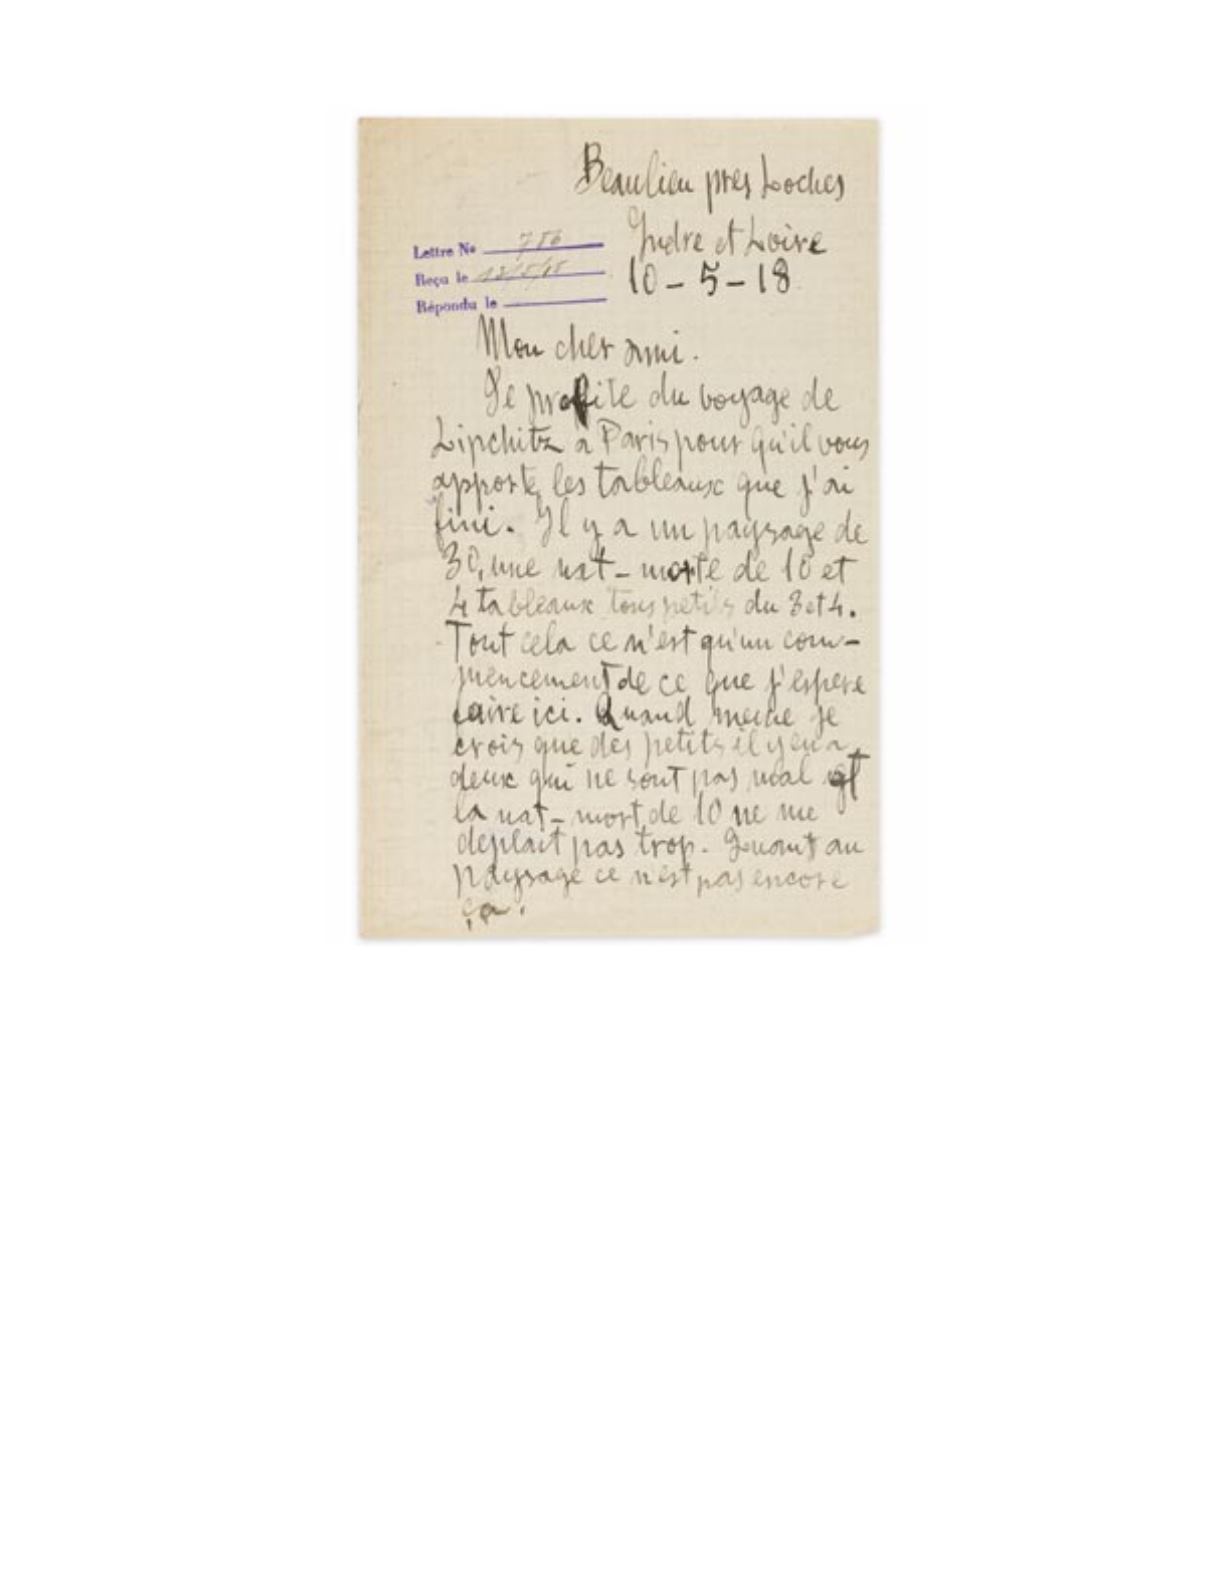 Beaulieu pres Loches
Indre et Loire
Lettre No 756
Reçu le 12/5/18
10-5-18
Répondu le
Mon cher ami.
Je profite du voyage de
Lipchitz a Paris pour qu'il vous
apporte les tableaux que j'ai
fini. Il y a un paysage de
30, une nat-morte de 10 et
4 tableaux tous petits du 3 et 4.
Tout cela ce n'est qu'un com-
mencement de ce que j'espere
faire ici. Quand meme je
crois que des petits il y en a
deux qui ne sont pas mal et
la nat-mort de 10 ne me
deplait pas trop. Quant au
paysage ce n'est pas encore
ça.